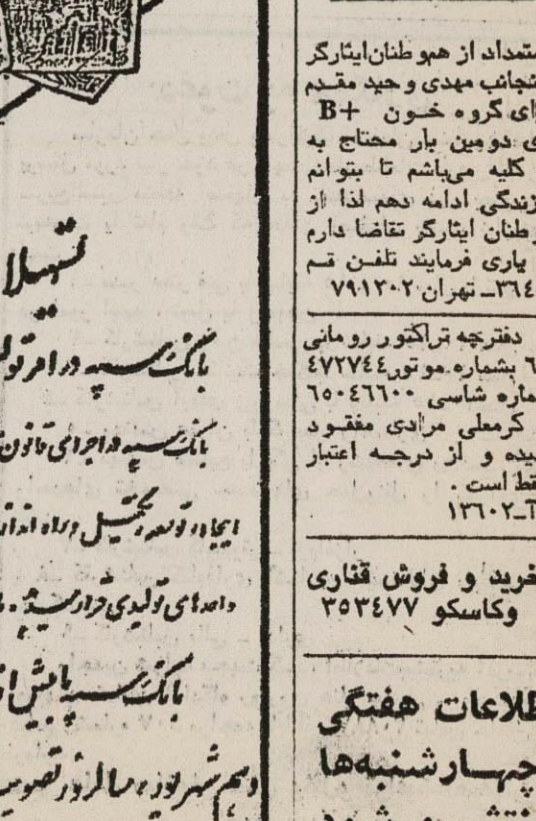 ستمداد از هموطنان ایثارگر
نجانب مهدی وحید مقدم
رای گروه خون B+
ی دومین بار محتاج به
کلیه میباشم تا بتوانم
زندگی ادامه دهم لذا از
وطنان ایثارگر تقاضا دارم
یاری فرمایند تلفن قم
۳٦٤ـ تهران ۷۹۱۳۰۲
دفترچه تراکتور رومانی
٦ بشماره موتور ٤۷۲۷٤٤
ماره شاسی ٦٥۰٤٦٦۰۰
کرمعلی مرادی مفقود
یده و از درجه اعتبار
قط است .
آـ۱۳٦۰۲
خرید و فروش قناری
وکاسکو ۳٥۳٤۷۷
طلاعات هفتگی
چهارشنبهها
تسهیلا
بانک سپه در امر تولی
بانک سپه در اجرای قانون
ایجاد، توسعه، تکمیل و راه انداز
واحدهای تولیدی قرار میدهد.
بانک سپه با بیش از
دهم شهریور، سالروز تصویب